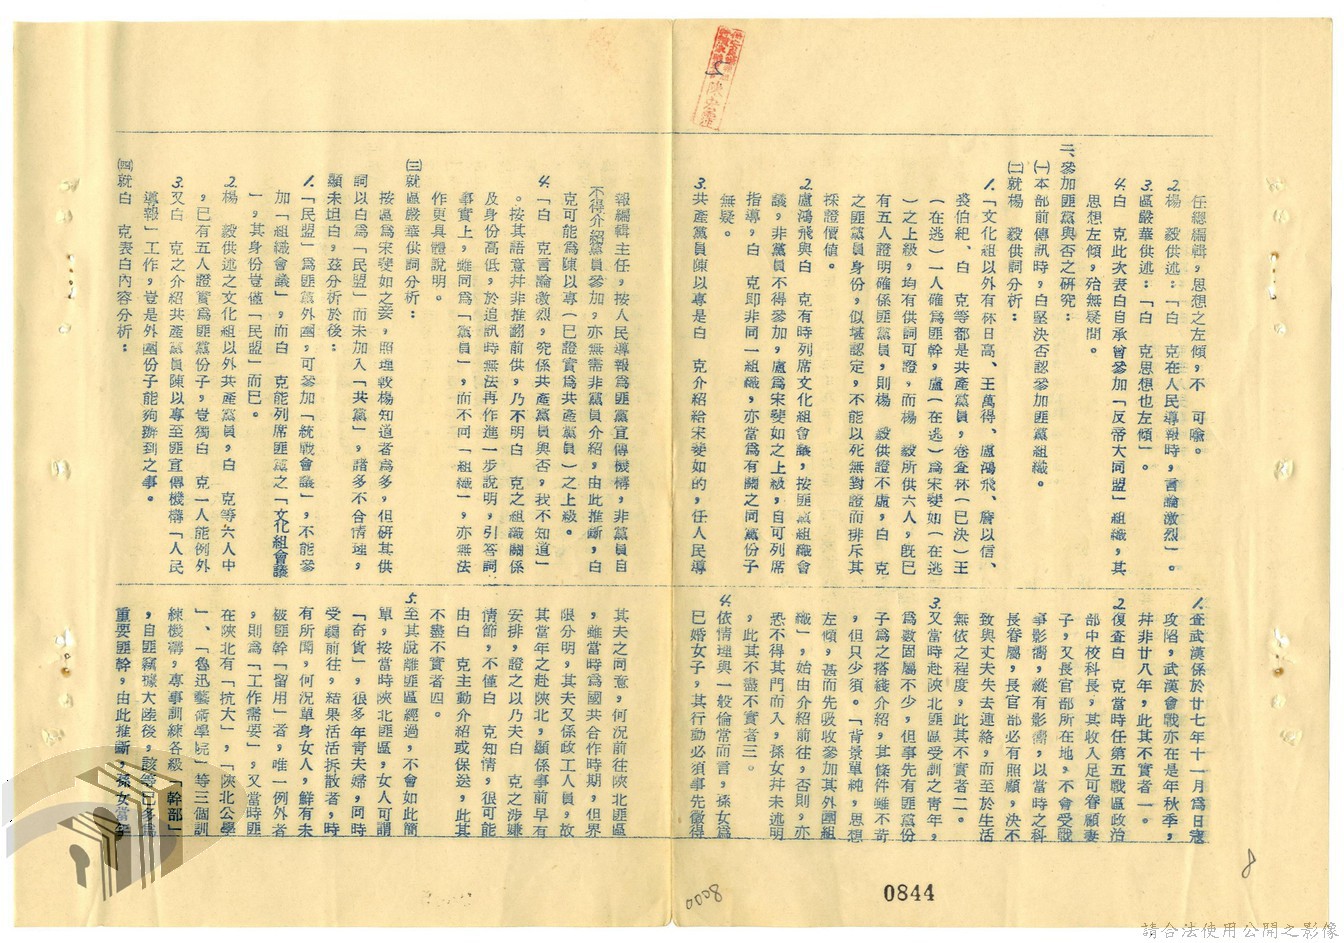 任總編輯，思想之左傾，不　可喩。
2.楊　毅供述：「白　克在人民導報時，言論激烈」。
3.區嚴華供述：「白　克思想也左傾」。
4.白　克此次表白自承曾參加「反帝大同盟」組織，其
思想左傾，殆無疑問。
二、參加匪黨與否之研究：
㈠本部前傳訊時，白堅決否認參加匪黨組織。
㈡就楊　毅供詞分析：
1.「文化組以外有林日高、王萬得、盧鴻飛、詹以信、
裘伯紀、白　克等都是共產黨員，卷查林（已決）王
（在逃）一人確爲匪幹，盧（在逃）爲宋斐如（在逃
）之上級，均有供詞可證，而楊　毅所供六人，旣已
有五人證明確係匪黨員，則楊　毅供證不虛，白　克
之匪黨員身份，似堪認定，不能以死無對證而排斥其
採證價值。
2.盧鴻飛與白　克有時列席文化組會議，按匪黨組織會
議，非黨員不得參加，盧爲宋斐如之上級，自可列席
指導，白　克卽非同一組織，亦當爲有關之同黨份子
無疑。
3.共產黨員陳以專是白　克介紹給宋斐如的，任人民導
報編輯主任，按人民導報爲匪黨宣傳機構，非黨員自
不得介紹黨員參加，亦無需非黨員介紹，由此推斷，白
克可能爲陳以專（已證實爲共產黨員）之上級。
4.「白　克言論激烈，究係共產黨員與否，我不知道」
。按其語意幷非推翻前供，乃不明白　克之組織關係
及身份高低，於追訊時無法再作進一步說明，引答詞
事實上，雖同爲「黨員」，而不同「組織」，亦無法
作更具體說明。
㈢就區嚴華供詞分析：
按區爲宋斐如之妾，照理較楊知道者爲多，但研其供
詞以白爲「民盟」而未加入「共黨」，諸多不合情理，
顯未坦白，茲分析於後：
1.「民盟」爲匪黨外團，可參加「統戰會議」，不能參
加「組織會議」，而白　克能列席匪黨之「文化組會議
」，其身份豈僅「民盟」而已。
2.楊　毅供述之文化組以外共產黨員，白　克等六人中
，已有五人證實爲匪黨份子，豈獨白　克一人能例外
3.又白　克之介紹共產黨員陳以專至匪宣傳機構「人民
導報」工作，豈是外圍份子能夠辦到之事。
㈣就白　克表白內容分析：
1.查武漢係於廿七年十一月爲日寇
攻陷，武漢會戰亦在是年秋季，
幷非廿八年，此其不實者一。
2.復查白　克當時任第五戰區政治
部中校科長，其收入足可眷顧妻
子，又長官部所在地，不會受戰
事影響，縱有影響，以當時之科
長眷屬，長官部必有照顧，決不
致與丈夫失去連絡，而至於生活
無依之程度，此其不實者二。
3.又當時赴陝北匪區受訓之靑年，
爲數固屬不少，但事先有匪黨份
子爲之搭綫介紹，其條件雖不苛
，但只少須。「背景單純，思想
左傾，甚而先吸收參加其外圍組
織」，始由介紹前往，否則，亦
恐不得其門而入，孫女幷未述明
，此其不盡不實者三。
4.依情理與一般倫常而言，孫女爲
已婚女子，其行動必須事先徵得
其夫之同意，何況前往陝北匪區
，雖當時爲國共合作時期，但界
限分明，其夫又係政工人員，故
其當年之赴陝北，顯係事前早有
安排，證之以乃夫白　克之涉嫌
情節，不僅白　克知情，很可能
由白　克主動介紹或保送，此其
不盡不實者四。
5.至其脫離匪區經過，不會如此簡
單，按當時陝北匪區，女人可謂
「奇貨」，很多年靑夫婦，同時
受騙前往，結果活活拆散者，時
有所聞，何況單身女人，鮮有未
被匪幹「留用」者，唯一例外者
，則爲「工作需要」，又當時匪
在陝北有「抗大」，「陝北公學
」、「魯迅藝術學院」等三個訓
練機構，專事訓練各級「幹部」
，自匪竊據大陸後，該等已多爲
重要匪幹，由此推斷，孫女當年
0008
0844
8
請合法使用公開之影像